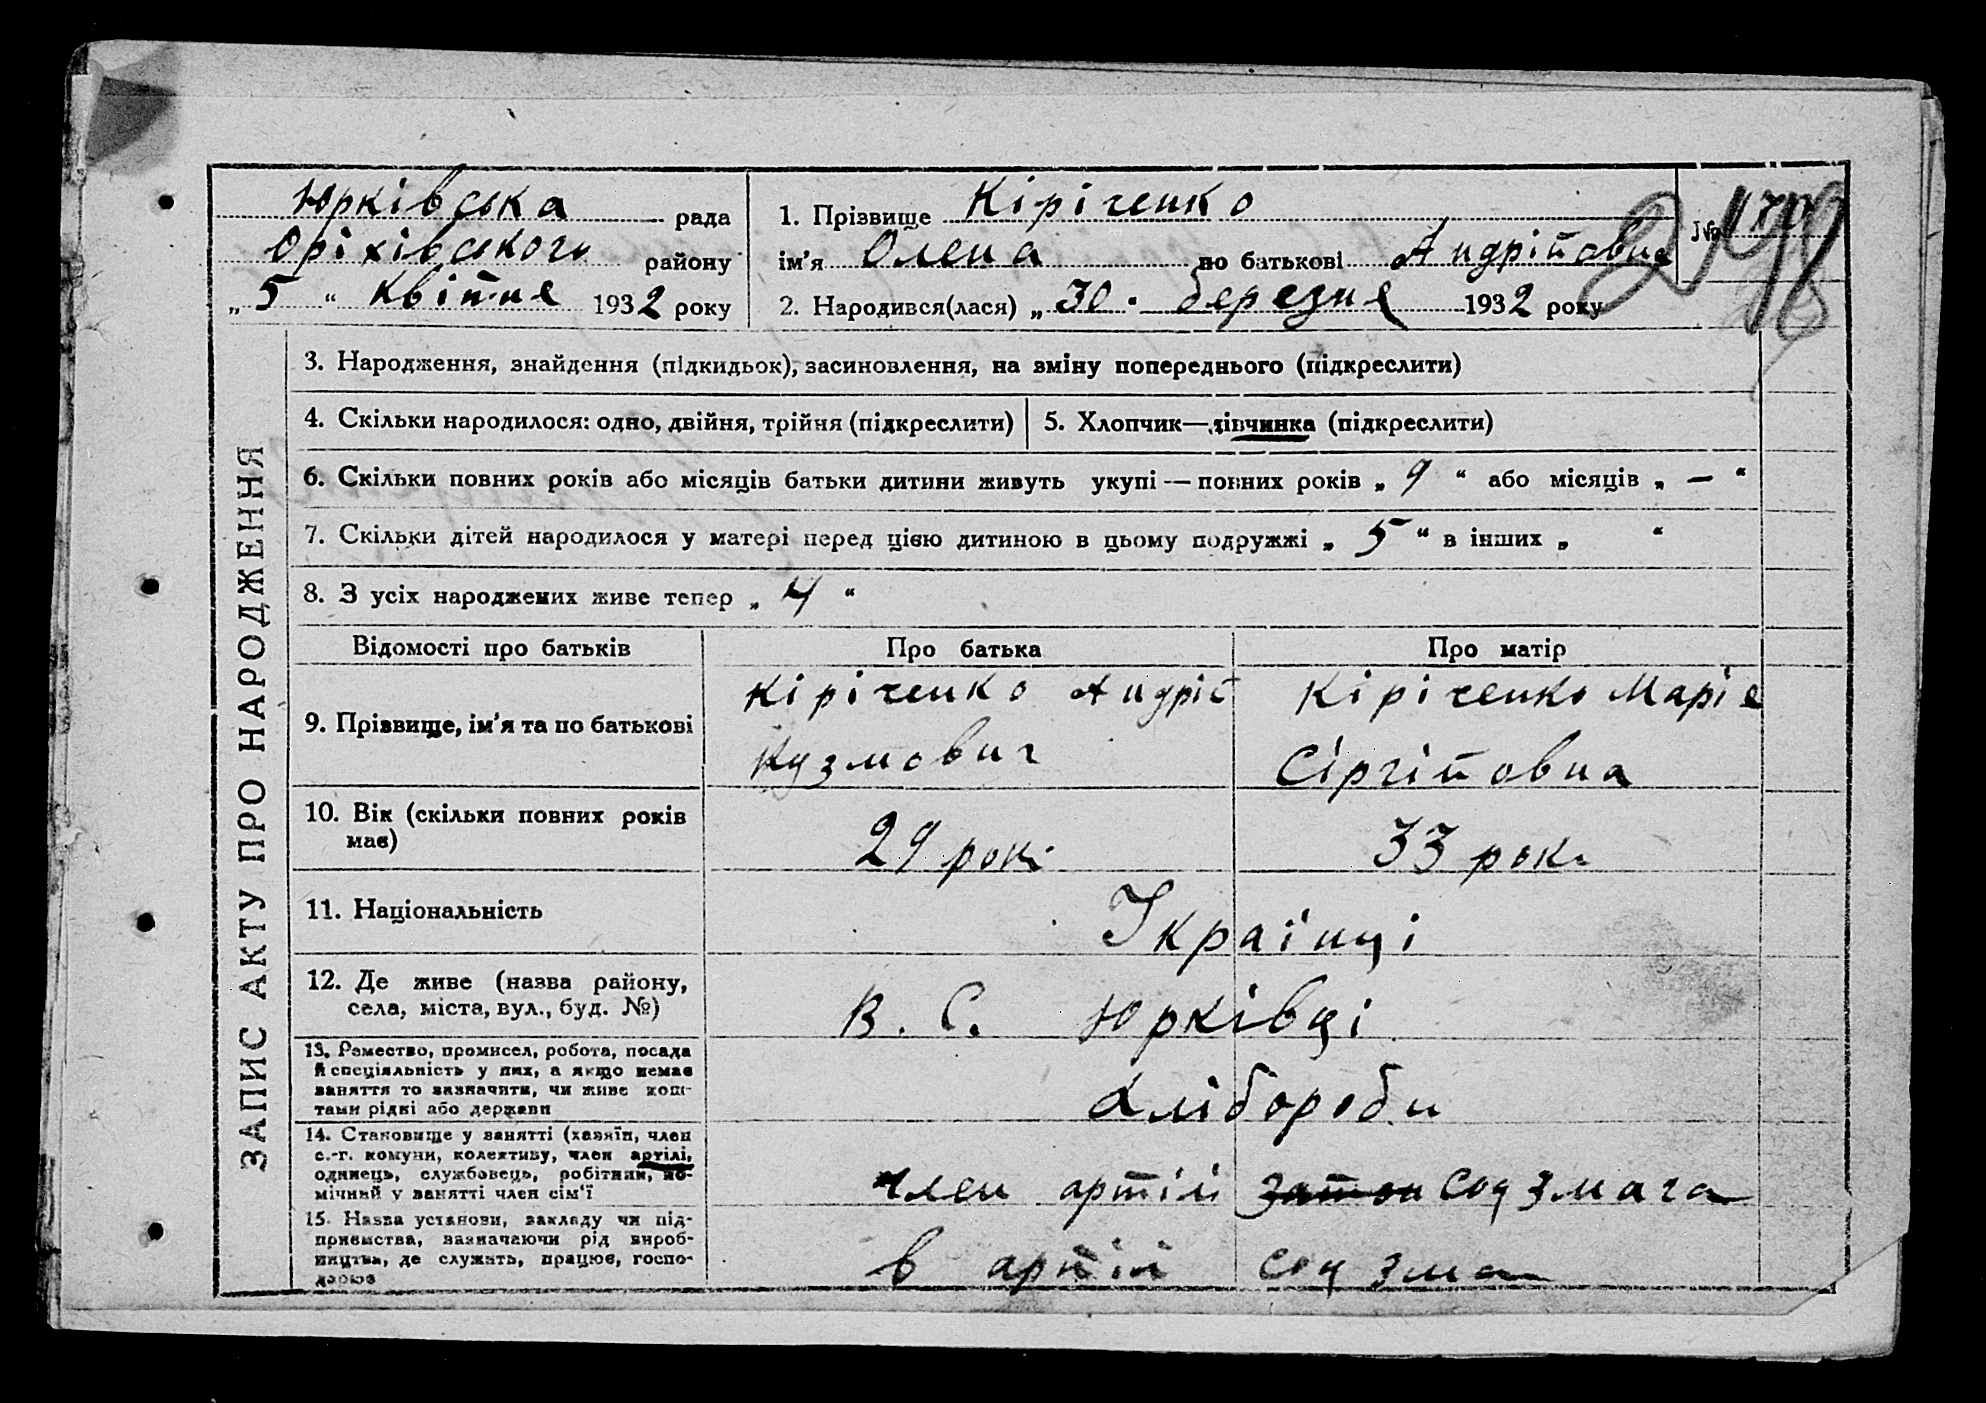 Юрківська рада
Оріхівського району
„5“ Квітня 1932 року
1. Прізвище Кіріченко
ім'я Олена по батькові Андрійовна
2. Народився(лася) „30. березня 1932 року
№
ЗАПИС АКТУ ПРО НАРОДЖЕННЯ
3. Народження, знайдення (підкидьок), засиновлення, на зміну попереднього (підкреслити)
4. Скільки народилося: одно, двійня, трійня (підкреслити)
5. Хлопчик—дівчинка (підкреслити)
6. Скільки повних років або місяців батьки дитини живуть укупі — повних років „ 9 “ або місяців „ — “
7. Скільки дітей народилося у матері перед цією дитиною в цьому подружжі „ 5 “ в інших „ “
8. З усіх народжених живе тепер „ 4 “
Відомості про батьків
Про батька
Про матір
9. Прізвище, ім'я та по батькові
Кіріченко Андрій
Кузмович
Кіріченко Марія
Сіргійовна
10. Вік (скільки повних років
має)
29 рок.
33 рок.
11. Національність
Українці
12. Де живе (назва району,
села, міста, вул., буд. №)
В. С. Юрківці
13. Ремество, промисел, робота, посада
й спеціяльність у них, а якщо немає
заняття то зазначити, чи живе кош-
тами рідні або держави
хлібороби
14. Становище у занятті (хазяїн, член
с.-г. комуни, колективу, член артілі,
одинець, службовець, робітник, по-
мічний у занятті член сім'ї
член артілі Соцзмага
15. Назва установи, закладу чи під-
приємства, зазначаючи рід вироб-
ництва, де служить, працює, госпо-
дарює
в артілі соцзма